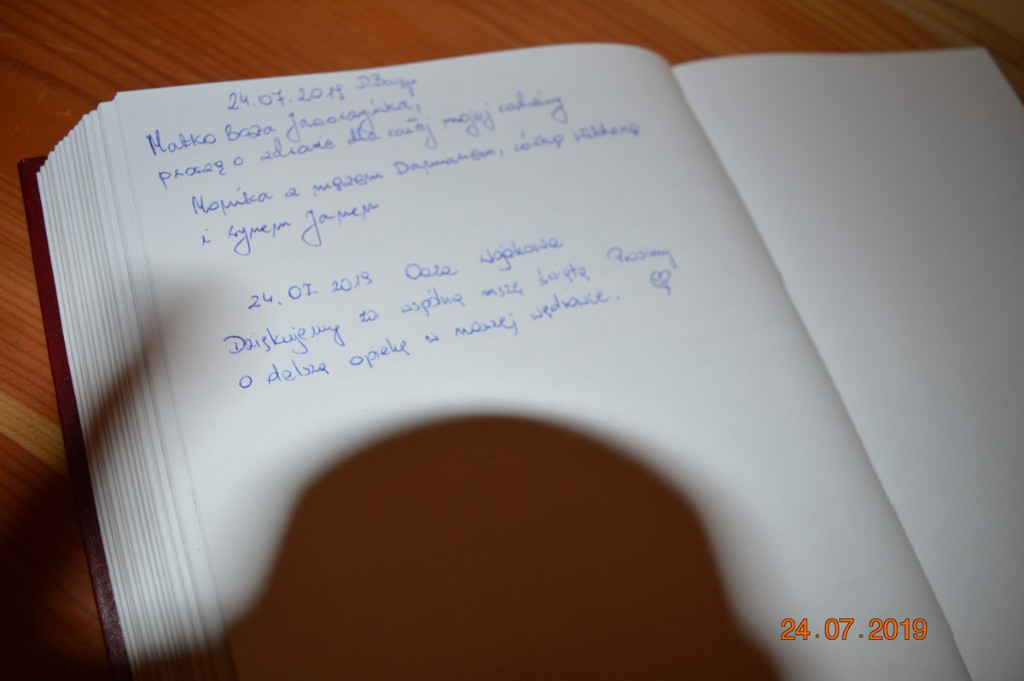 24.07.2019
Matko Boża Jaworzyńska,
proszę o zdrowie dla całej mojej rodziny
Monika z mężem Damianem, córką Wiktorią
i synem Janem
24.07.2019 Oaza Wojakowa
Dziękujemy za wspólną mszę świętą. Prosimy
o dalszą opiekę w naszej wędrówce.
24.07.2019